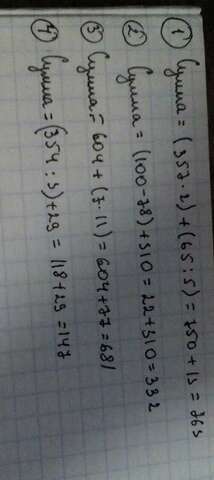 ① Сумма = (357·2)+(65:5)=750+15=765
② Сумма = (100-78)+310=22+310=332
③ Сумма = 604+(7·11)=604+77=681
④ Сумма = (354:3)+29=118+29=147